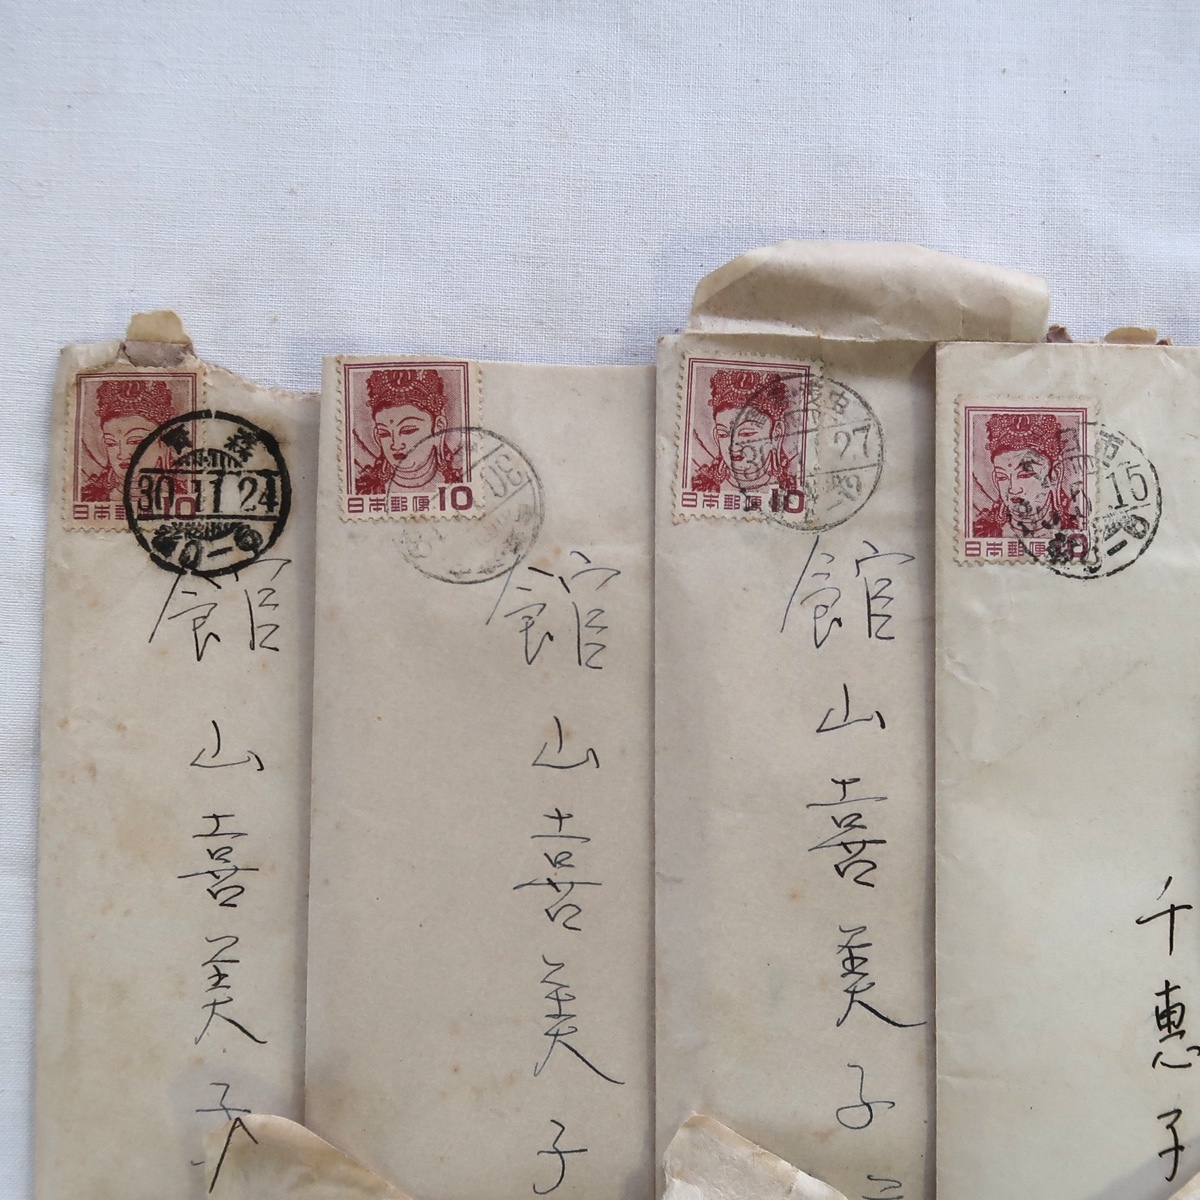 日本郵便 10
青森
30.11.24
館山喜美子
日本郵便 10
30
館山喜美子
日本郵便 10
27
館山喜美子
日本郵便
15
千恵子